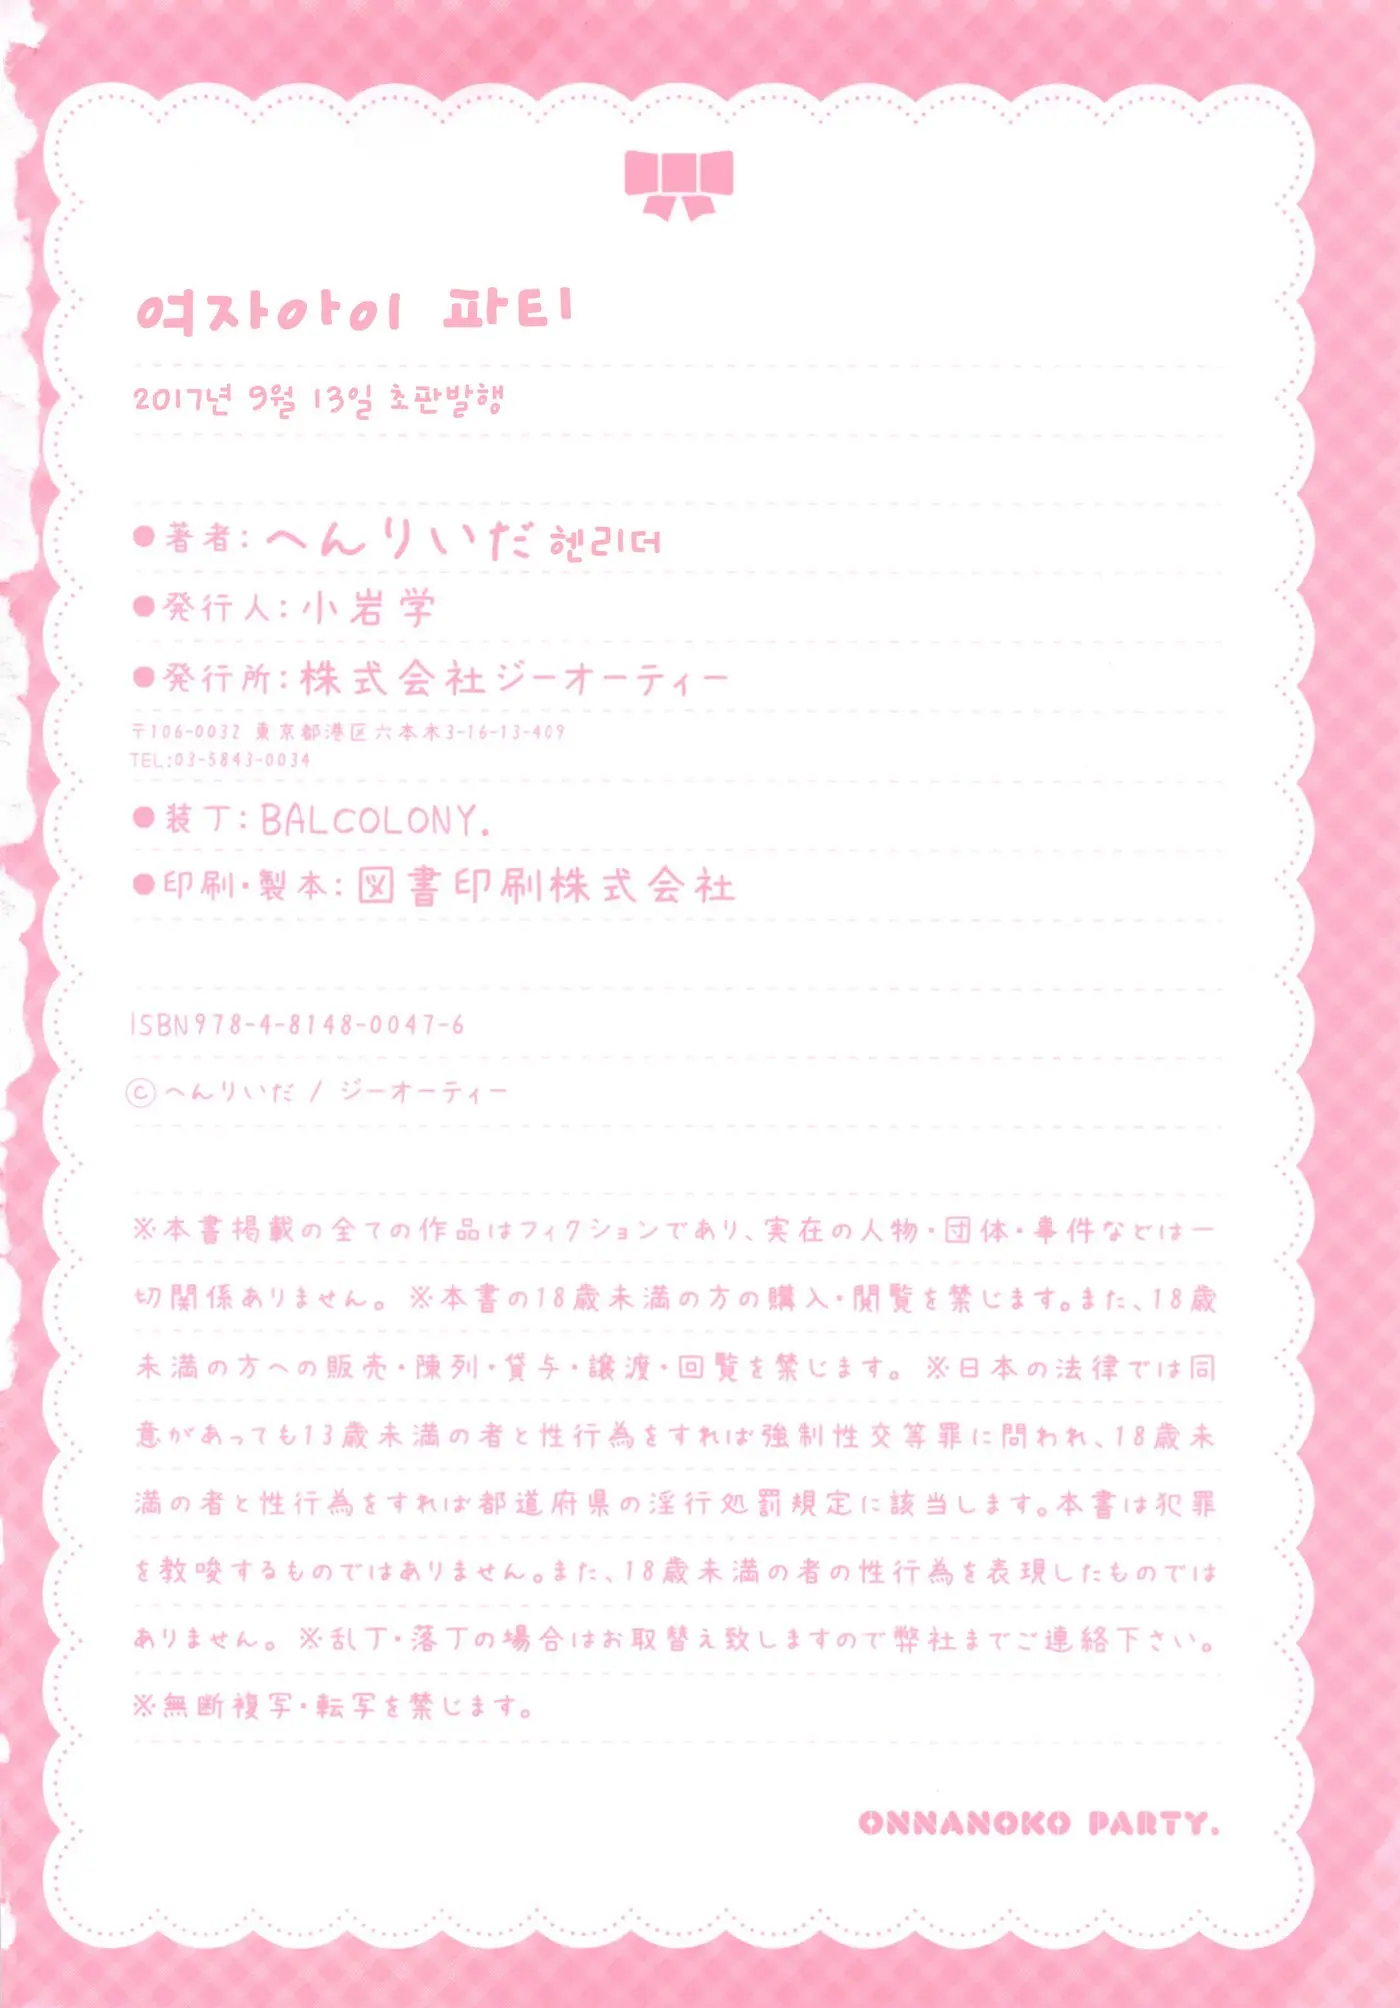 여자아이 파티
2017년 9월 13일 초판발행
●著者：へんりいだ 헨리더
●発行人：小岩学
●発行所：株式会社ジーオーティー
〒106-0032 東京都港区六本木3-16-13-409
TEL:03-5843-0034
●装丁：BALCOLONY.
●印刷・製本：図書印刷株式会社
ISBN978-4-8148-0047-6
©へんりいだ / ジーオーティー
※本書掲載の全ての作品はフィクションであり、実在の人物・団体・事件などとは一
切関係ありません。 ※本書の18歳未満の方の購入・閲覧を禁じます。また、18歳
未満の方への販売・陳列・貸与・譲渡・回覧を禁じます。 ※日本の法律では同
意があっても13歳未満の者と性行為をすれば強制性交等罪に問われ、18歳未
満の者と性行為をすれば都道府県の淫行処罰規定に該当します。本書は犯罪
を教唆するものではありません。また、18歳未満の者の性行為を表現したものでは
ありません。 ※乱丁・落丁の場合はお取替え致しますので弊社までご連絡下さい。
※無断複写・転写を禁じます。
ONNANOKO PARTY.